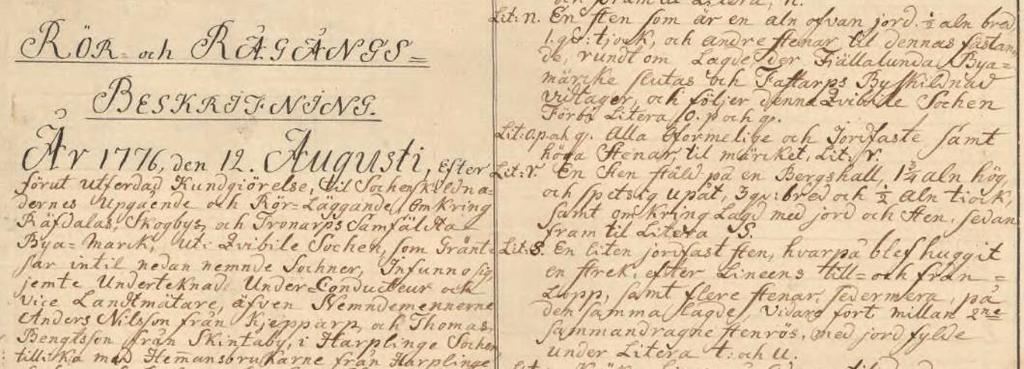 RÖR- och RÅGÅNGS-
BESKRIFNING.
År 1776, den 12. Augusti, Efter
förut utferdad Kundgiörelse, til Sochenskildna-
dernes Upgående och Rör-Läggande, Omkring
Räfdalas, Skogbys, och Tronarps Samfälta
Bya-Marck, ut: Qvibile Sochen, som Gränt-
sar intil nedan nemnde Sochner, Infunno sig
jemte Underteknad Under Conducteur och
Vice Landtmätare, äfven Nemndemennerne
Anders Nilsson från Kjepparp, och Thomas
Bengtsson från Skintaby, i Harplinge Sochen
tillika med Hemansbrukarne från Harplinge
Lit: n. En sten som är en aln ofvan jord, ½ aln bred
1. qv: tjock, och andre stenar til dennas fastan-
de, rundt om Lagde, der Fjällalunda Bya-
märcke slutas och Fastarps By skildnad
vidtager, och följer denna Qvibile Sochen
Förbi Litera O. p och q.
Lit: o. p. och q. Alla Oformelige och Jordfaste samt
höga Stenar, til märcket, Lit: r.
Lit: r. En Sten stäld på en Bergshall, 1¾ aln hög
och spetsig upåt, 3 qv: bred och ½ aln tiock,
samt omkring Lagd med jord och sten, sedan
fram til Litera S.
Lit: S. En liten jordfast sten, hvarpå blef huggit
en strek, efter Lineens till- och från-
Lopp, samt flere stenar, sedermera, på
den samma lagde. Vidare fort millan 2ne
sammandragne stenrös, med jord fylde
under Litera t: och u.